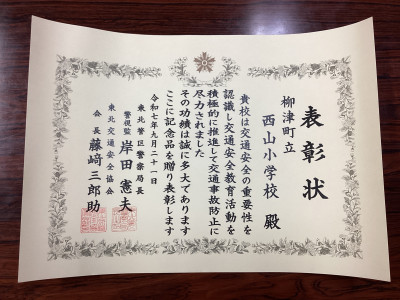 表彰状
柳津町立
西山小学校 殿
貴校は交通安全の重要性を
認識し交通安全教育活動を
積極的に推進して交通事故防止に
尽力されました
その功績は誠に多大であります
ここに記念品を贈り表彰します
令和七年九月二十一日
東北管区警察局長
警視監 岸田憲夫
東北交通安全協会
会長 藤﨑三郎助